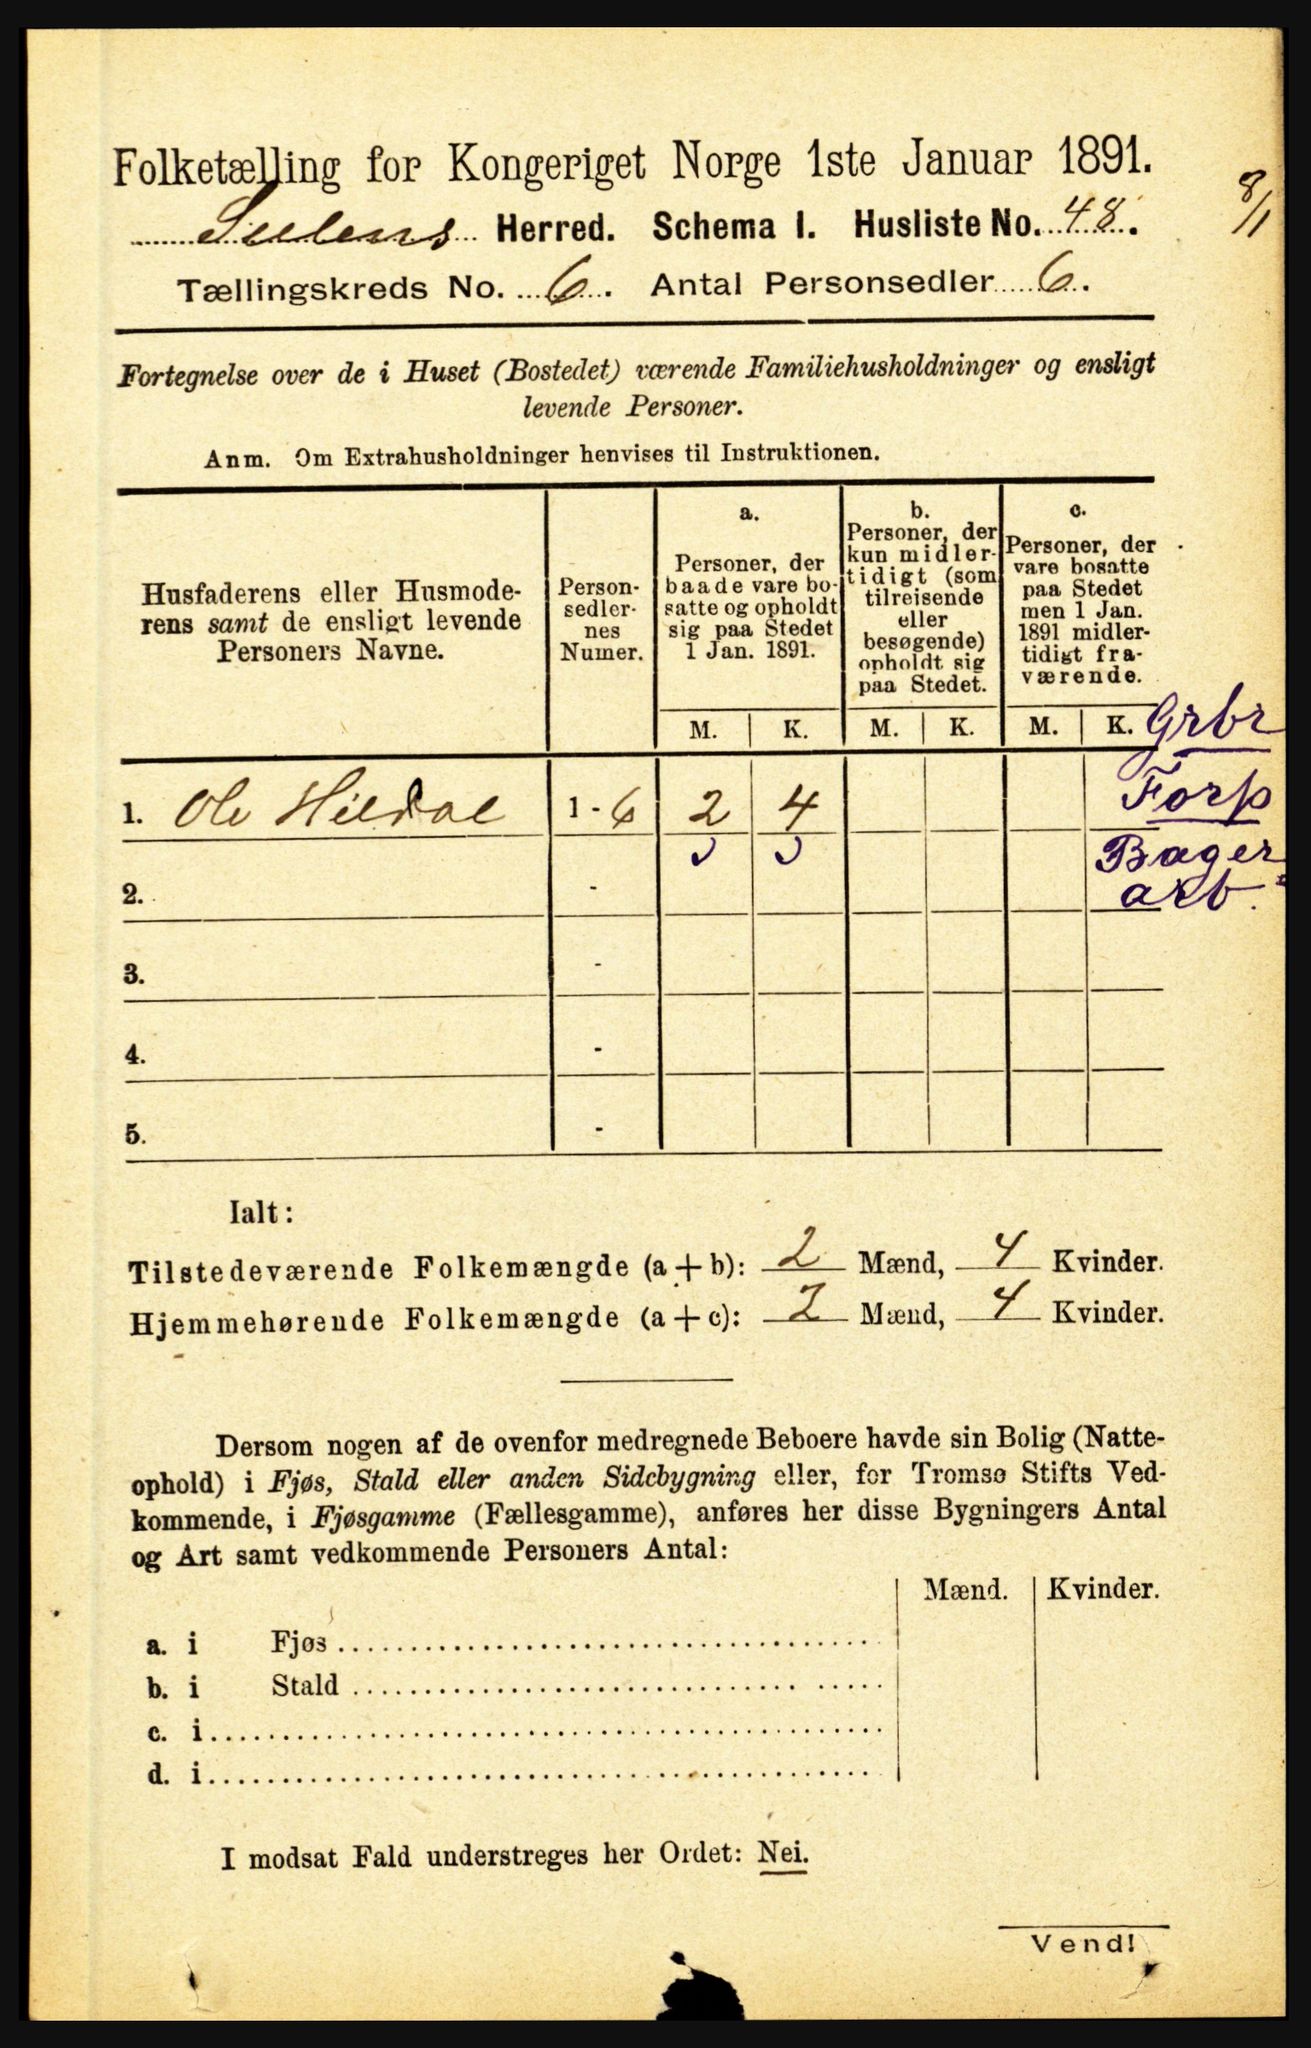 Folketælling for Kongeriget Norge 1ste Januar 1891.
8/1
Sulens Herred. Schema I. Husliste No. 48.
Tællingskreds No. 6. Antal Personsedler 6.
Fortegnelse over de i Huset (Bostedet) værende Familiehusholdninger og ensligt
levende Personer.
Anm. Om Extrahusholdninger henvises til Instruktionen.
Husfaderens eller Husmode-
rens samt de ensligt levende
Personers Navne.
Person-
sedler-
nes
Numer.
a.
Personer, der
baade vare bo-
satte og opholdt
sig paa Stedet
1 Jan. 1891.
b.
Personer, der
kun midler-
tidigt (som
tilreisende
eller
besøgende)
opholdt sig
paa Stedet.
c.
Personer, der
vare bosatte
paa Stedet
men 1 Jan.
1891 midler-
tidigt fra-
værende.
M. K. M. K. M. K.
Grbr
Forp
Bager
arb.
1. Ole Hildal 1 - 6 2 4
2. -
3. -
4. -
5. -
Ialt:
Tilstedeværende Folkemængde (a + b): 2 Mænd, 4 Kvinder.
Hjemmehørende Folkemængde (a + c): 2 Mænd, 4 Kvinder.
Dersom nogen af de ovenfor medregnede Beboere havde sin Bolig (Natte-
ophold) i Fjøs, Stald eller anden Sidebygning eller, for Tromsø Stifts Ved-
kommende, i Fjøsgamme (Fællesgamme), anføres her disse Bygningers Antal
og Art samt vedkommende Personers Antal:
Mænd. Kvinder.
a. i Fjøs
b. i Stald
c. i
d. i
I modsat Fald understreges her Ordet: Nei.
Vend!